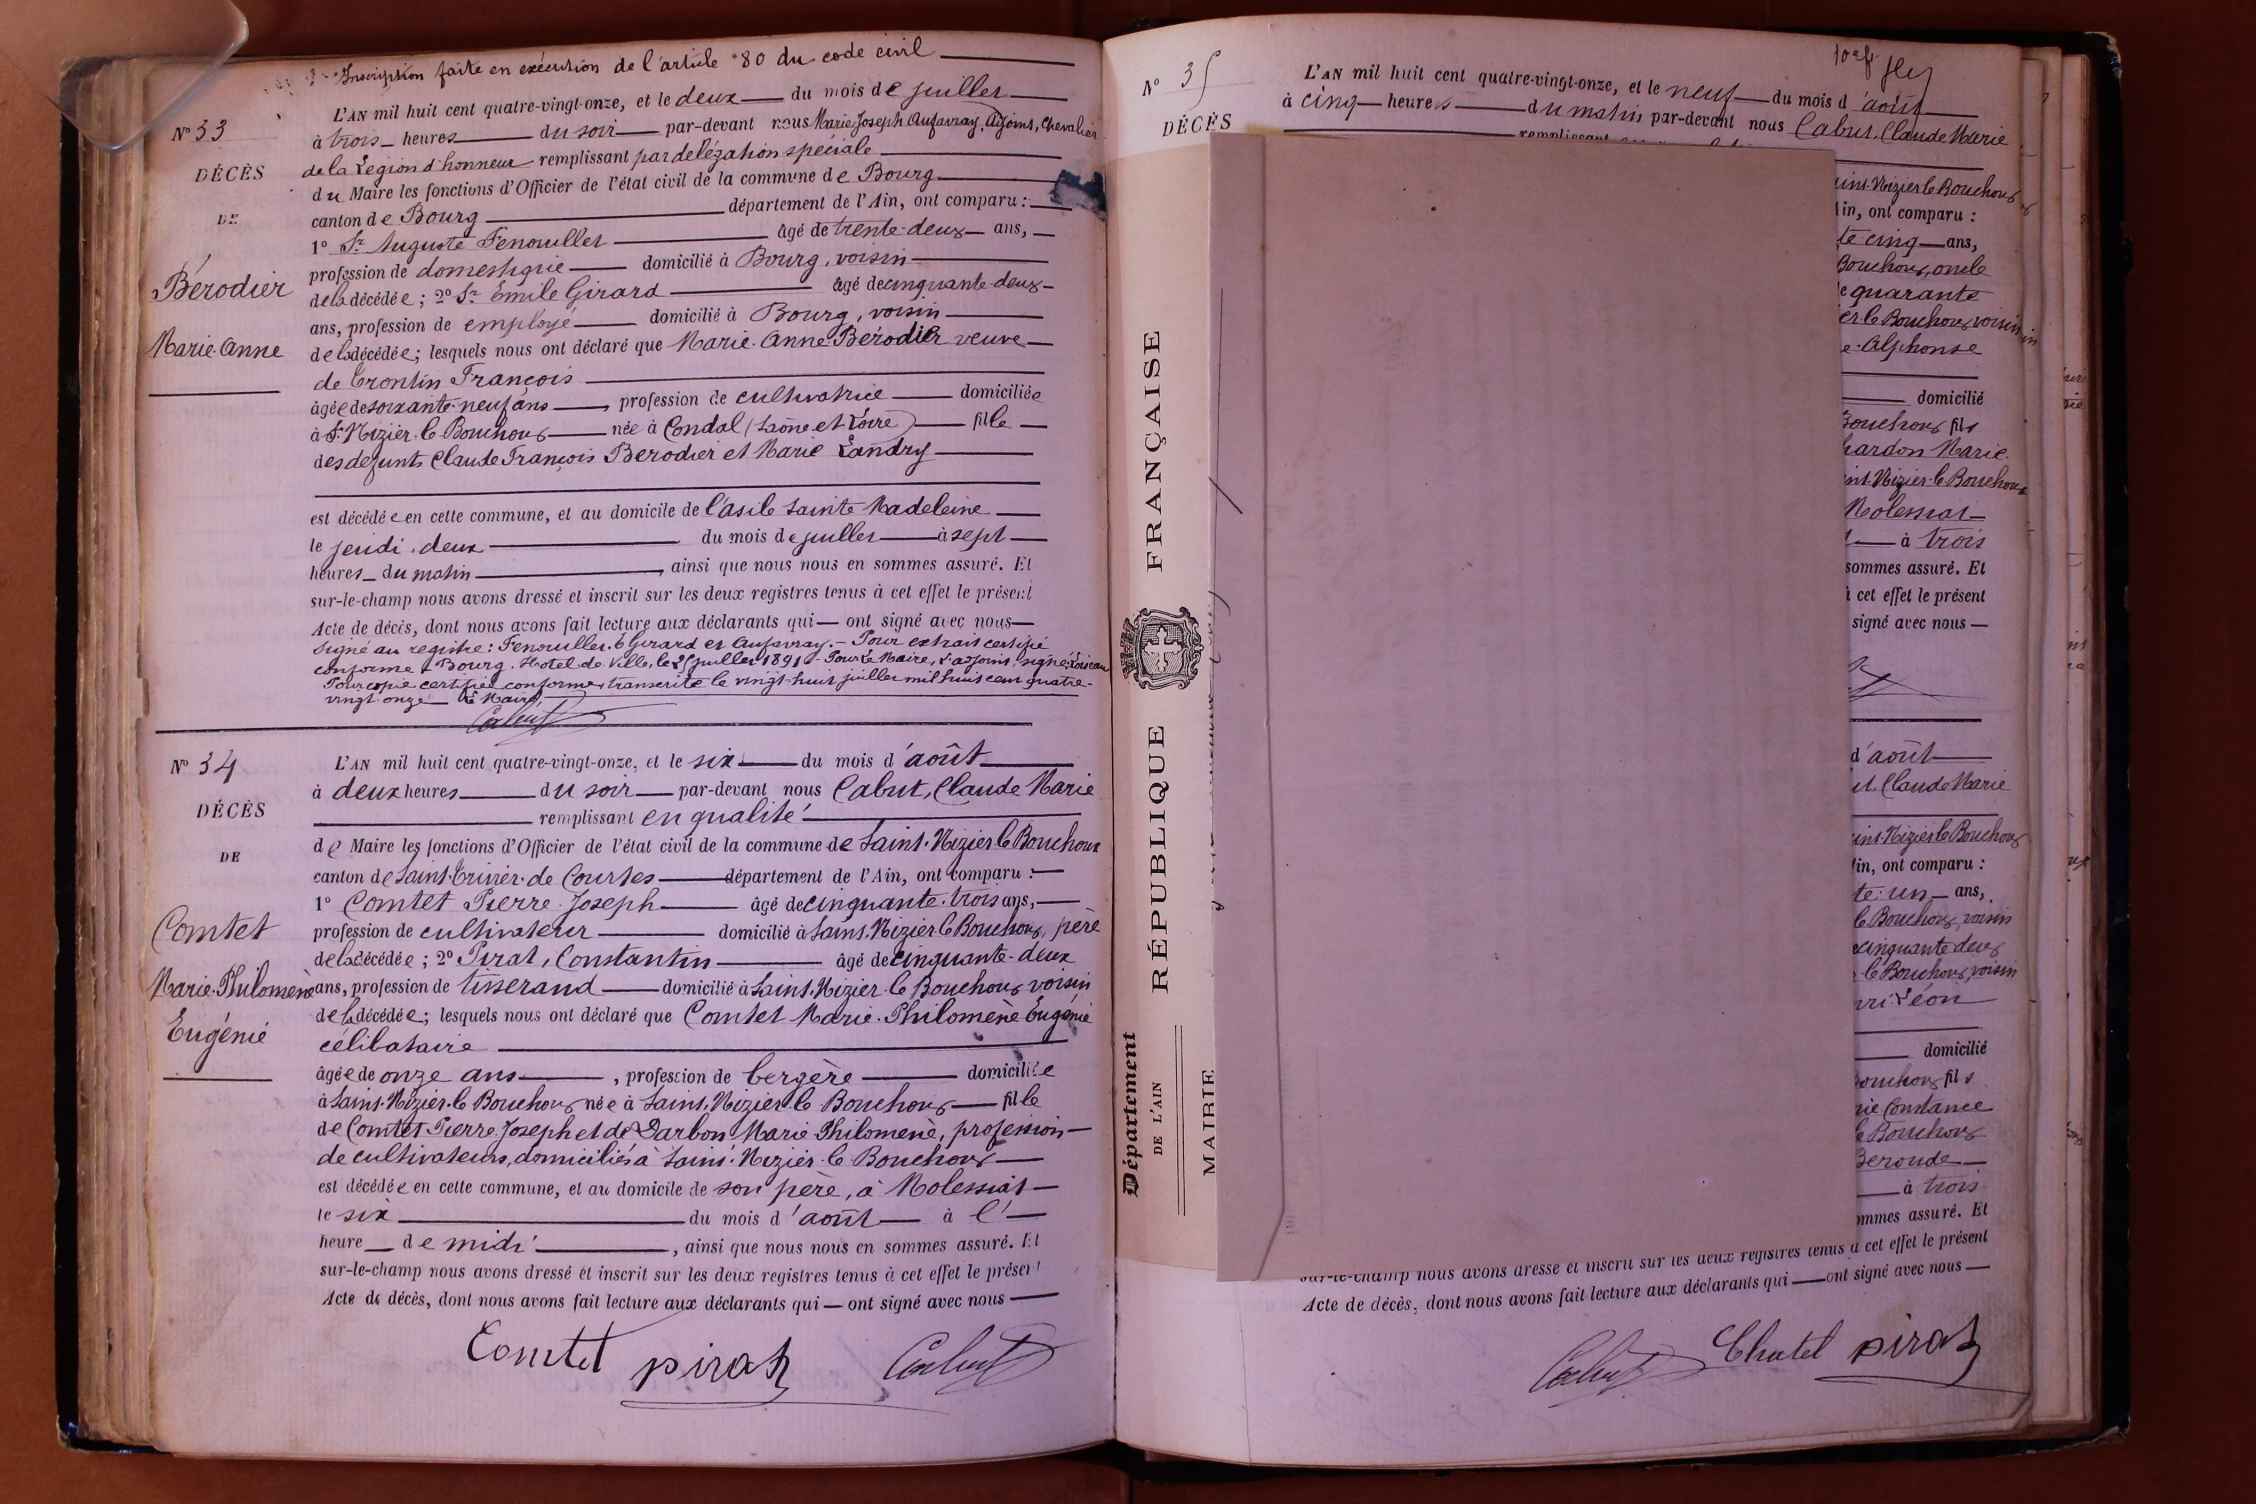 Inscription faite en exécution de l'article 80 du code civil
N° 33
DÉCÈS
DE
Bérodier
Marie-Anne
L'AN mil huit cent quatre-vingt-onze, et le deux du mois de juillet
à trois heures du soir par-devant nous Marie Joseph Aufavray, Adjoint, Chevalier
de la Légion d'honneur remplissant par délégation spéciale
du Maire les fonctions d'Officier de l'état civil de la commune de Bourg
canton de Bourg département de l'Ain, ont comparu :
1° Sr Auguste Fenouillet âgé de trente-deux ans,
profession de domestique domicilié à Bourg, voisin
de la décédée ; 2° Sr Emile Girard âgé de cinquante-deux
ans, profession de employé domicilié à Bourg, voisin
de la décédée ; lesquels nous ont déclaré que Marie-Anne Bérodier veuve
de Trontin François
âgée de soixante-neuf ans, profession de cultivatrice domiciliée
à St Nizier-le-Bouchoux née à Condal (Saône et Loire) fille
des defunts Claude François Bérodier et Marie Landry
est décédée en cette commune, et au domicile de l'asile Sainte Madeleine
le jeudi, deux du mois de juillet à sept
heures du matin, ainsi que nous nous en sommes assuré. Et
sur-le-champ nous avons dressé et inscrit sur les deux registres tenus à cet effet le présent
Acte de décès, dont nous avons fait lecture aux déclarants qui ont signé avec nous
Signé au registre : Fenouillet, E Girard et Aufavray. - Pour extrait certifié
conforme Bourg. Hotel de Ville, le juillet 1891 - Pour Le Maire, L'adjoint, signé: Loiseau
Pour copie certifiée conforme, transcrite le vingt-huit juillet mil huit cent quatre-
vingt-onze Le Maire,
Cabut
N° 34
DÉCÈS
DE
Comtet
Marie-Philomène
Eugénie
L'AN mil huit cent quatre-vingt-onze, et le six du mois d'août
à deux heures du soir par-devant nous Cabut, Claude Marie
remplissant en qualité
de Maire les fonctions d'Officier de l'état civil de la commune de Saint-Nizier le Bouchoux
canton de Saint-Trivier-de-Courtes département de l'Ain, ont comparu :
1° Comtet Pierre-Joseph âgé de cinquante-trois ans,
profession de cultivateur domicilié à Saint-Nizier le Bouchoux, père
de la décédée ; 2° Pirat, Constantin âgé de cinquante-deux
ans, profession de tisserand domicilié à Saint-Nizier-le Bouchoux voisin
de la décédée ; lesquels nous ont déclaré que Comtet Marie-Philomène Eugénie
célibataire
âgée de onze ans, profession de bergère domiciliée
à Saint-Nizier-le Bouchoux née à Saint-Nizier le Bouchoux fille
de Comtet Pierre Joseph et de Darbon Marie Philomène, profession
de cultivateurs, domiciliés à Saint-Nizier-le Bouchoux
est décédée en cette commune, et au domicile de son père, à Molessiat
le six du mois d'août à l'
heure de midi, ainsi que nous nous en sommes assuré. Et
sur-le-champ nous avons dressé et inscrit sur les deux registres tenus à cet effet le présent
Acte de décès, dont nous avons fait lecture aux déclarants qui ont signé avec nous
Comtet pirat Cabut
N° 35
DÉCÈS
L'AN mil huit cent quatre-vingt-onze, et le neuf du mois d'août
à cinq heures du matin par-devant nous Cabut, Claude Marie
remplissant
RÉPUBLIQUE FRANÇAISE
Département
DE L'AIN
MAIRIE
Nizier le Bouchoux
in, ont comparu :
cinq ans,
Bouchoux, oncle
quarante
le Bouchoux, voisin
Alphonse
domicilié
Bouchoux fils
Marie
Nizier-le Bouchoux
Molessiat
à trois
sommes assuré. Et
à cet effet le présent
signé avec nous
d'août
Claude Marie
Nizier le Bouchoux
in, ont comparu :
un ans,
le Bouchoux, voisin
cinquante deux
le Bouchoux, voisin
Léon
domicilié
Bouchoux fils
Constance
le Bouchoux
Beroude
à trois
sommes assuré. Et
sur-le-champ nous avons dressé et inscrit sur les deux registres tenus à cet effet le présent
Acte de décès, dont nous avons fait lecture aux déclarants qui ont signé avec nous
Cabut Chatel pirat